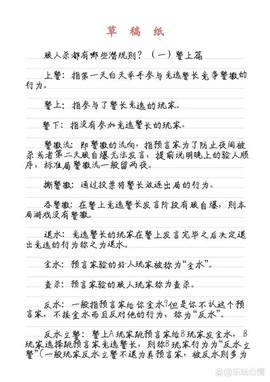 草 稿 纸
狼人杀都有哪些潜规则？（一）警上篇
上警：指第一天白天举手参与竞选警长竞争警徽的
行为。
警上：指参与了警长竞选的玩家。
警下：指没有参加竞选警长的玩家。
警徽流：即警徽的流向，指预言家为了防止夜间被
杀或者第二天狼自爆无法发言，提前说明晚上的验人顺
序，标准局警徽流一般留两夜。
撕警徽：通过投票将警长放逐出局的行为。
吞警徽：在警上竞选警长发言阶段有狼自爆，则本
局游戏没有警徽。
退水：竞选警长的玩家在警上发言完毕之后决定退
出竞选的行为称之为退水。
金水：预言家验的好人玩家被称为“金水”。
查杀：预言家验的狼人玩家称为查杀。
反水：一般指预言家给你金水？但是你不认这个预
言家，不接金水而且反对他的行为，称为“反水”。
反水立警：警上A玩家跳预言家给B玩家发金水，B
玩家选择跳预言家竞选警长，则称B玩家行为“反水立
警”（一般玩家反水立警不退为真预言家，被反水则多为